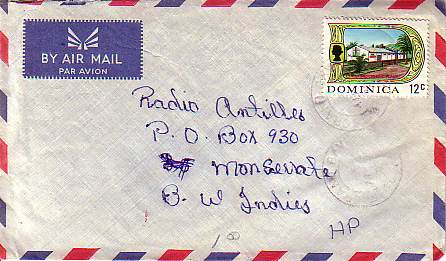 BY AIR MAIL
PAR AVION
DOMINICA 12c
Radio Antilles
P. O. Box 930
Monserate
B. W Indies
HP